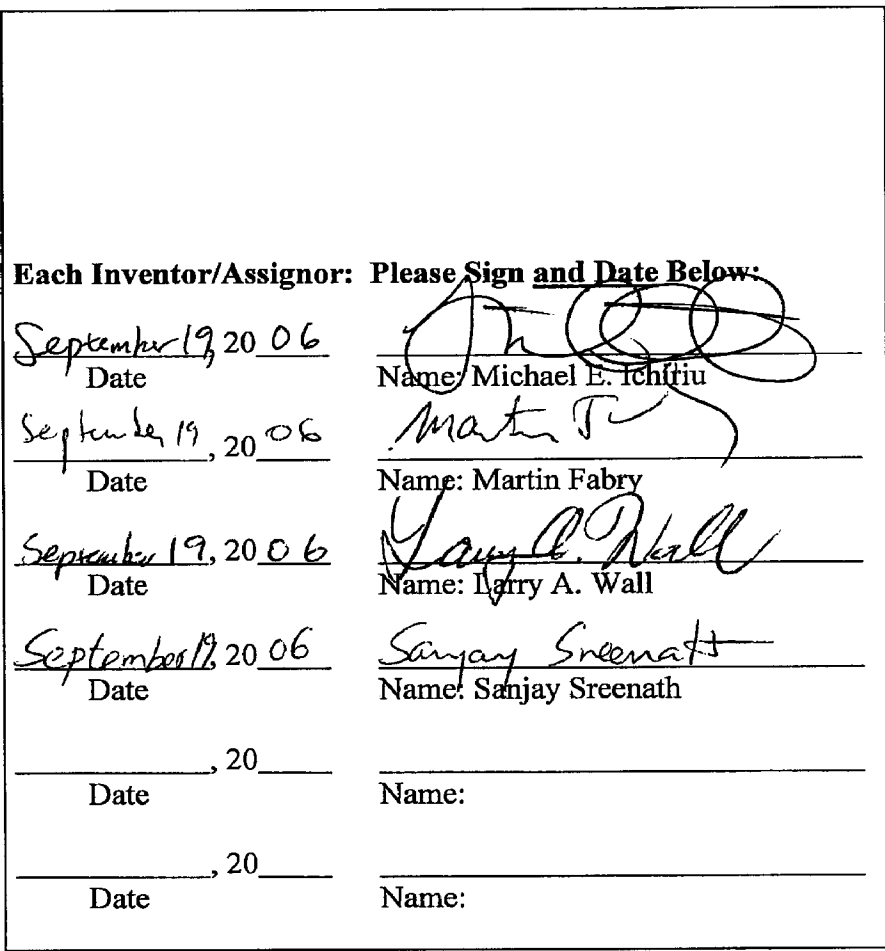 Each Inventor/Assignor: Please Sign and Date Below:
September 19, 20 06
Date Name: Michael E. Ichiriu
September 19, 20 06 Martin
Date Name: Martin Fabry
September 19, 20 06 Larry A. Wall
Date Name: Larry A. Wall
September 19, 20 06 Sanjay Sreenath
Date Name: Sanjay Sreenath
, 20
Date Name:
, 20
Date Name: